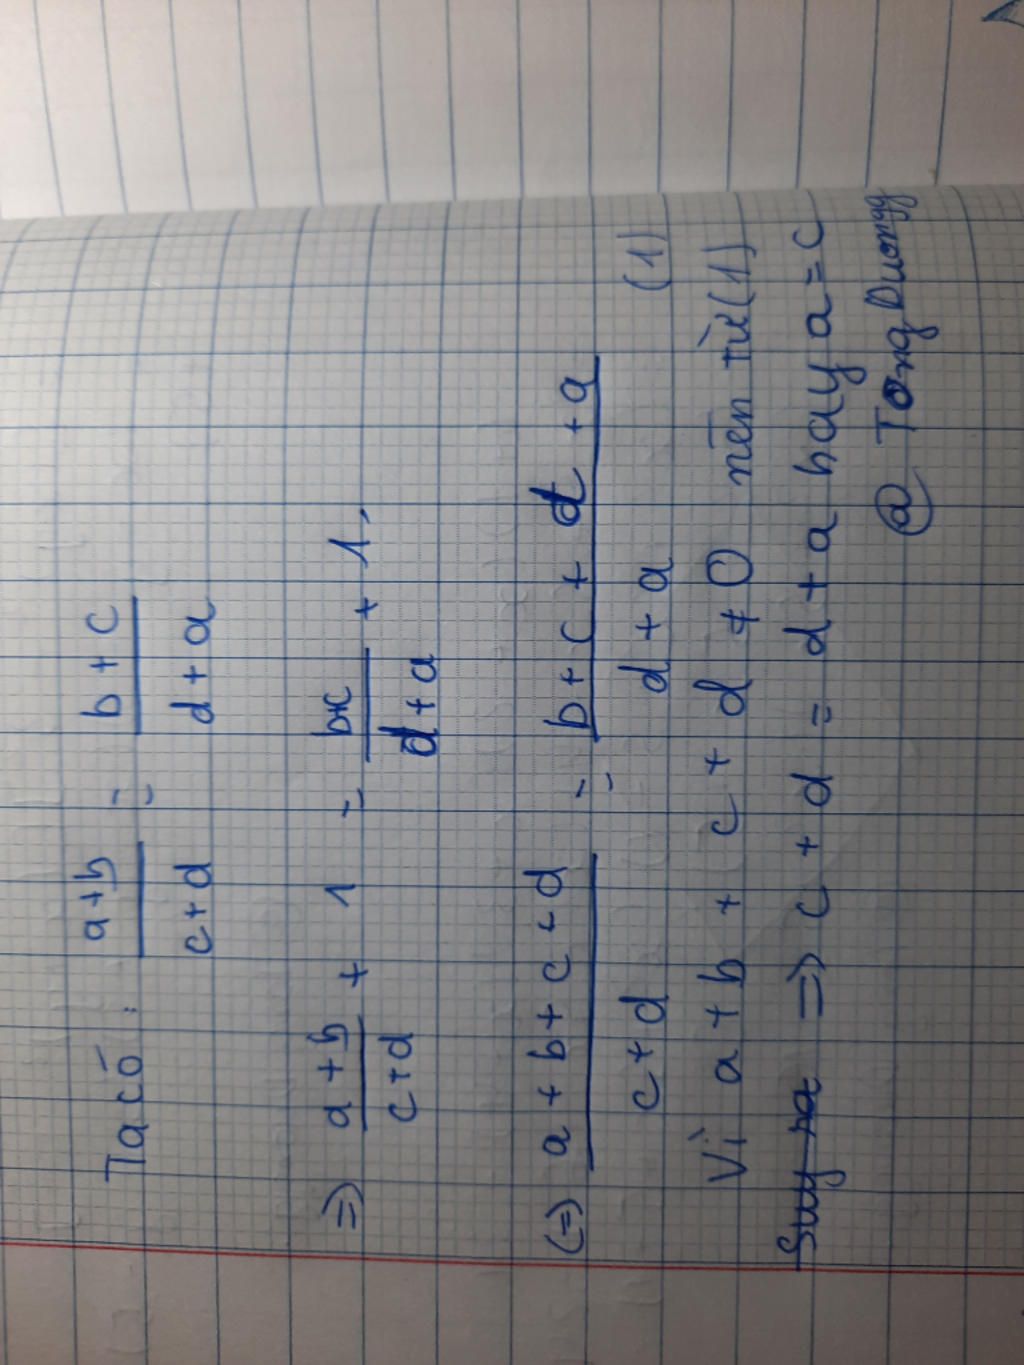 Ta có: a+b/c+d = b+c/d+a
=> a+b/c+d + 1 = b+c/d+a + 1,
(=) a+b+c+d/c+d = b+c+d+a/d+a (1)
Vì a+b+c+d ≠ 0 nên từ (1)
Suy ra => c+d = d+a hay a=c
@ TongDuongg